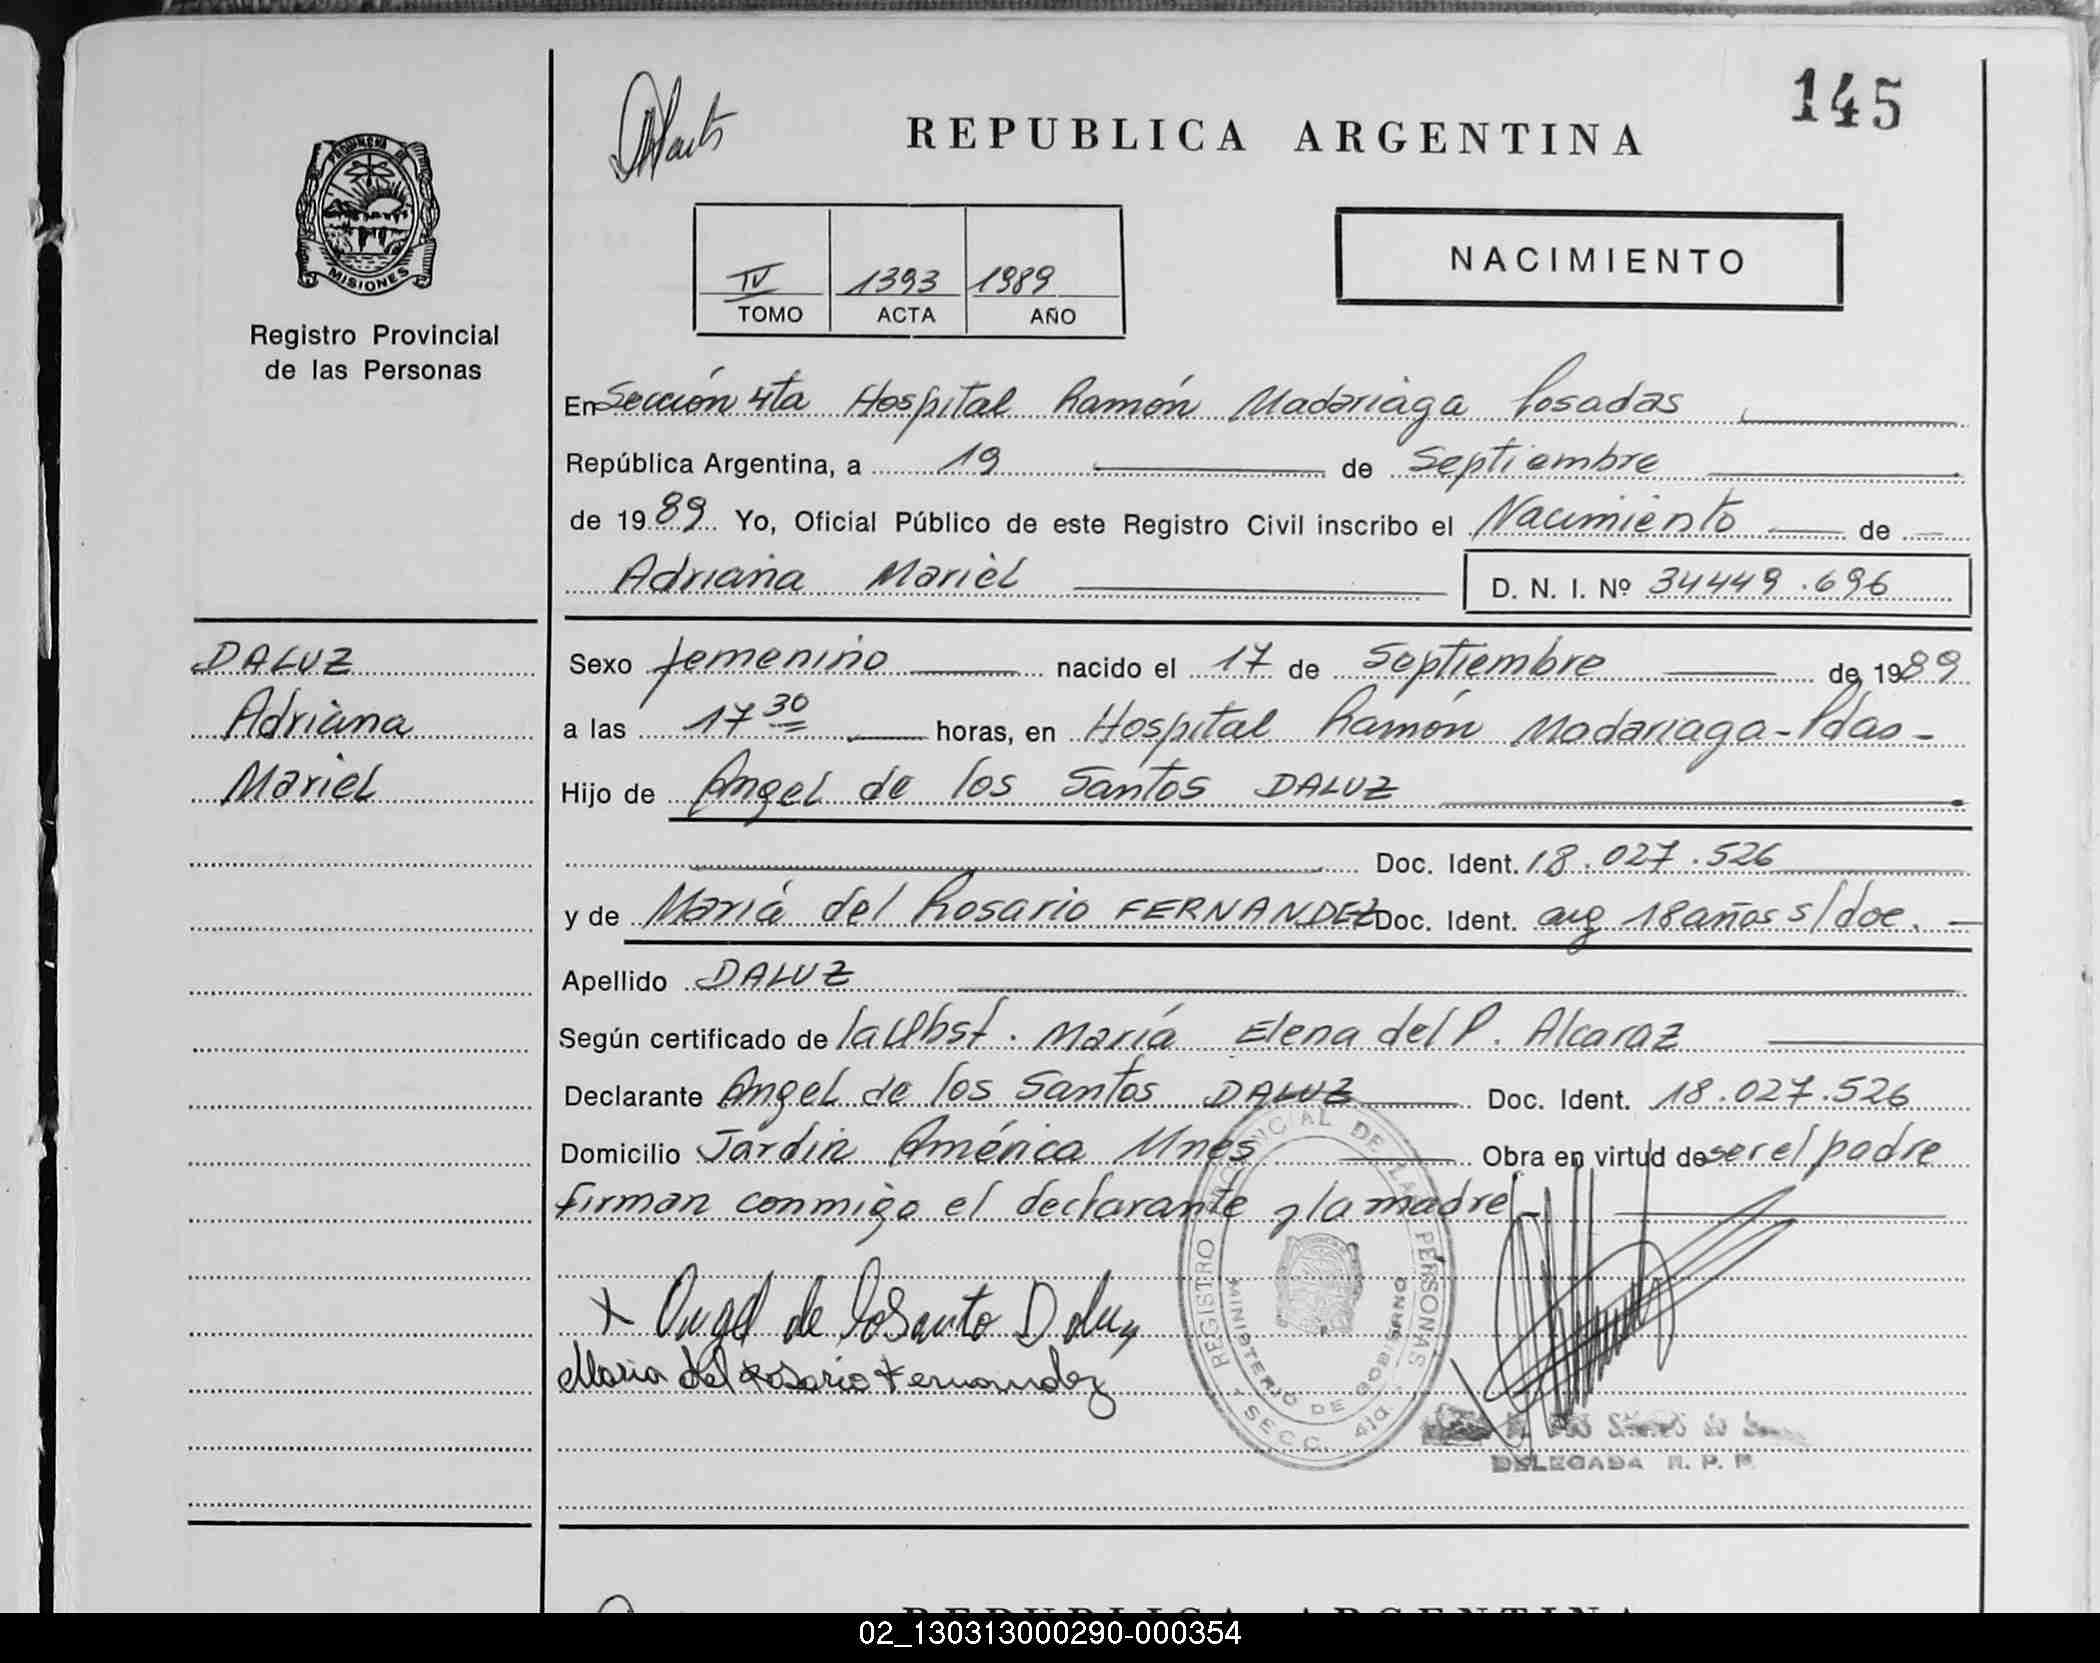 145
REPUBLICA ARGENTINA
PROVINCIA DE
MISIONES
Registro Provincial
de las Personas
NACIMIENTO
IV 1393 1989
TOMO ACTA AÑO
En Sección 4ta Hospital Ramón Madariaga Posadas
República Argentina, a 19 de Septiembre
de 1989 Yo, Oficial Público de este Registro Civil inscribo el Nacimiento de
Adriana Mariel D. N. I. Nº 34449.696
DALUZ
Adriana
Mariel
Sexo femenino nacido el 17 de Septiembre de 1989
a las 17 30 horas, en Hospital Ramón Madariaga-Pdas-
Hijo de Angel de los Santos DALUZ
Doc. Ident. 18.027.526
y de María del Rosario FERNANDEZ Doc. Ident. arg 18 años s/doc.
Apellido DALUZ
Según certificado de la Obst. María Elena del P. Alcaraz
Declarante Angel de los Santos DALUZ Doc. Ident. 18.027.526
Domicilio Jardín América Mnes Obra en virtud de ser el padre
firman conmigo el declarante y la madre
REGISTRO PROVINCIAL DE LAS PERSONAS
MINISTERIO DE GOBIERNO
SECC. 4ta.
x Angel de loSanto Daluz
Maria del Rosario Fernandez
DELEGADA R. P. P.
REPUBLICA ARGENTINA
02_130313000290-000354